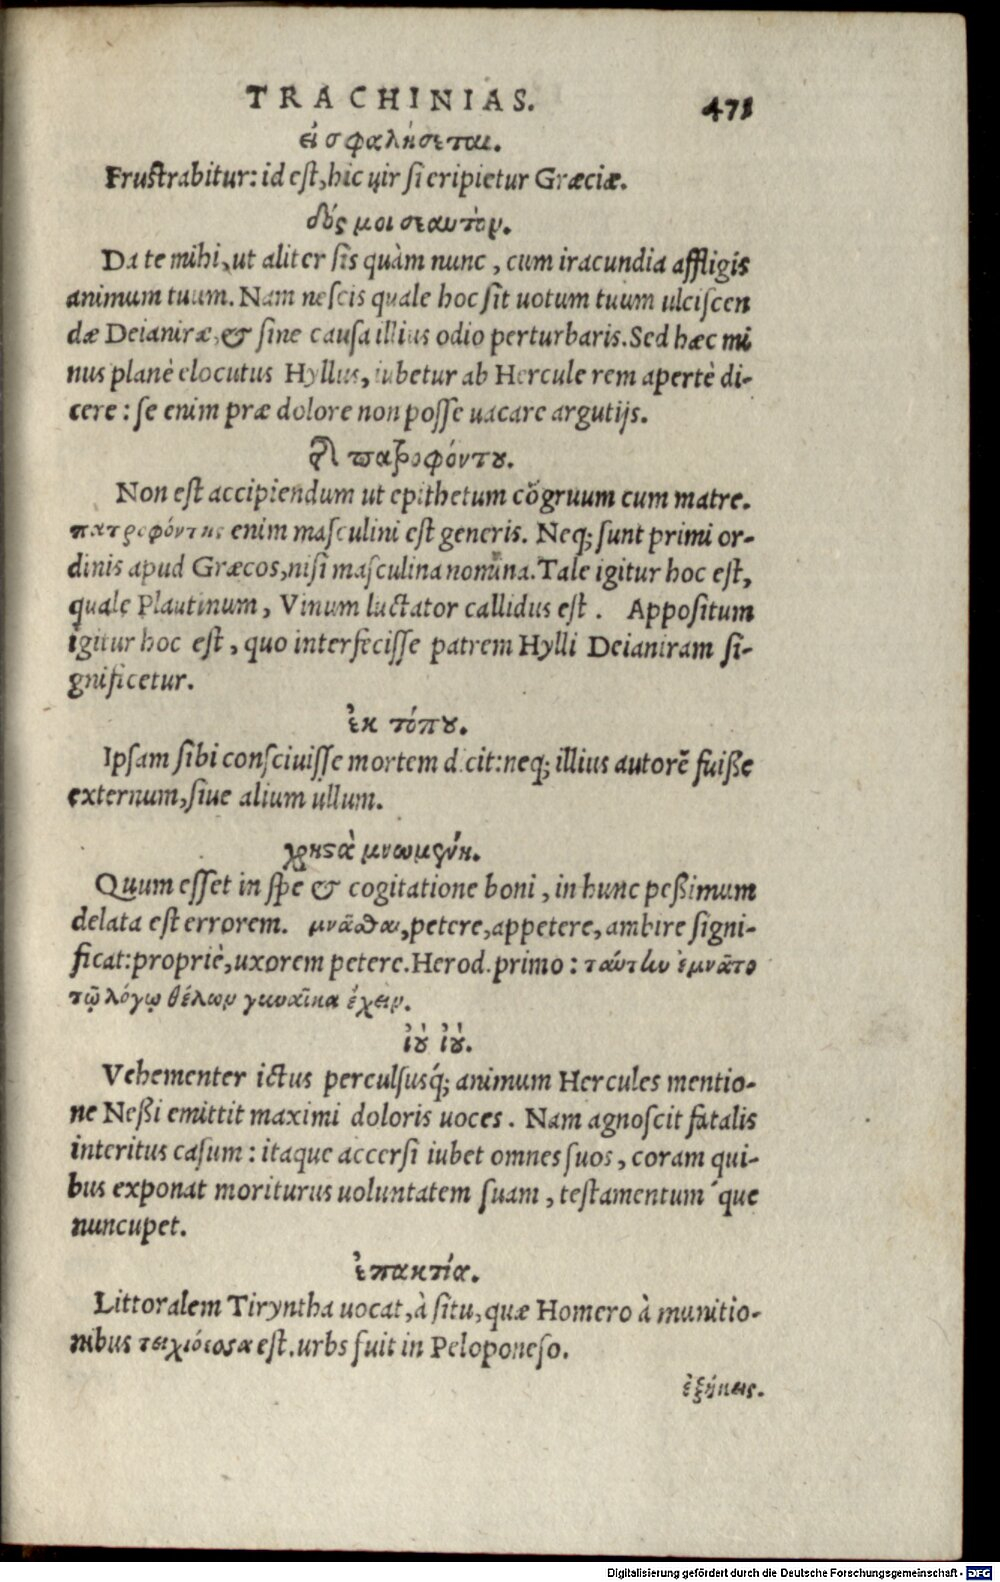 TRACHINIAS. 471
εἰ σφαλήσεται.
Frustrabitur: id est, hic uir si eripietur Græciæ.
δός μοι σεαυτόν.
Da te mihi, ut aliter sis quàm nunc, cum iracundia affligis
animum tuum. Nam nescis quale hoc sit uotum tuum ulciscen
dæ Deianiræ, & sine causa illius odio perturbaris. Sed hæc mi
nus planè elocutus Hyllus, iubetur ab Hercule rem apertè di-
cere: se enim præ dolore non posse uacare argutijs.
πατροφόντου.
Non est accipiendum ut epithetum cõgruum cum matre.
πατροφόντης enim masculini est generis. Neq; sunt primi or-
dinis apud Græcos, nisi masculina nomina. Tale igitur hoc est,
quale Plautinum, Vinum luctator callidus est. Appositum
igitur hoc est, quo interfecisse patrem Hylli Deianiram si-
gnificetur.
ἐκ τόπου.
Ipsam sibi consciuisse mortem dicit: neq; illius autorẽ fuisse
externum, siue alium ullum.
χρηστὰ μνωμένη.
Quum esset in spe & cogitatione boni, in hunc pessimum
delata est errorem. μνᾶσθαι, petere, appetere, ambire signi-
ficat: propriè, uxorem petere. Herod. primo: ταύτην ἐμνᾶτο
τῷ λόγῳ θέλων γυναῖκα ἔχειν.
ἰοὺ ἰού.
Vehementer ictus perculsusq́; animum Hercules mentio-
ne Nessi emittit maximi doloris uoces. Nam agnoscit fatalis
interitus casum: itaque accersi iubet omnes suos, coram qui-
bus exponat moriturus uoluntatem suam, testamentum´que
nuncupet.
ἐπακτία.
Littoralem Tiryntha uocat, à situ, quæ Homero à munitio-
nibus τειχιόεσσα est. urbs fuit in Peloponeso.
ἐξήκεις.
Digitalisierung gefördert durch die Deutsche Forschungsgemeinschaft - DFG